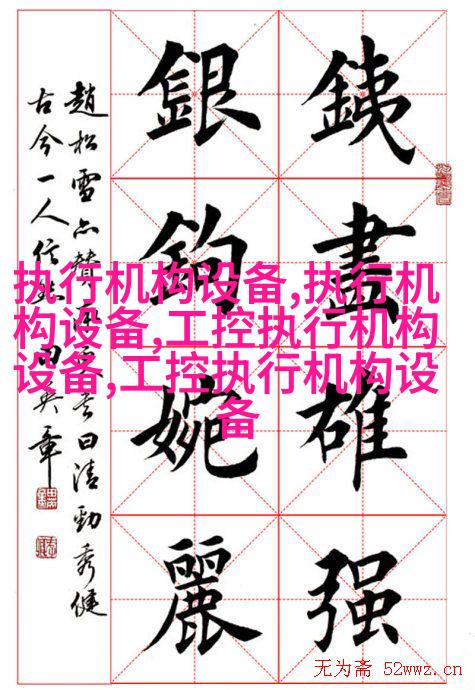 銕畫雄强
銀鉤婉麗
趙松雪亦贊曰清勁秀健
古今一人信然 田英章
执行机构设备,执行机
构设备,工控执行机构
设备,工控执行机构设
备
无为斋 52wwz.cn